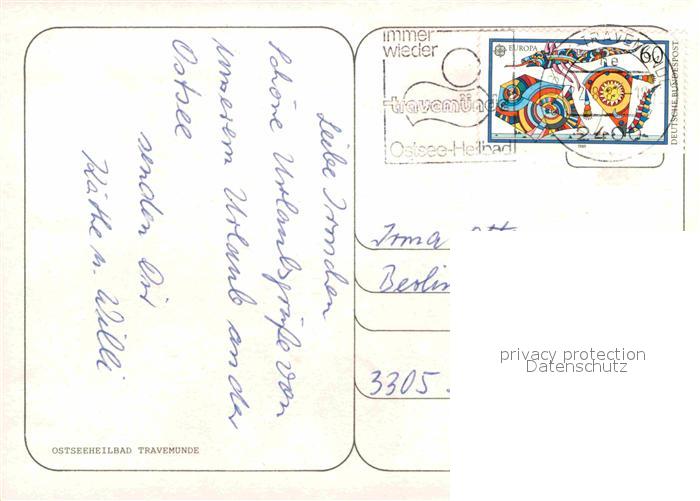 Leibe Irmchen
Schöne Urlaubsgrüße von
unserem Urlaub an der
Ostsee
senden Dir
Käthe u. Willi
OSTSEEHEILBAD TRAVEMÜNDE
immer
wieder
travemünde
Ostsee-Heilbad
EUROPA
60
DEUTSCHE BUNDESPOST
TRAVEMÜ
2400
Irma
Berlin
3305
privacy protection
Datenschutz